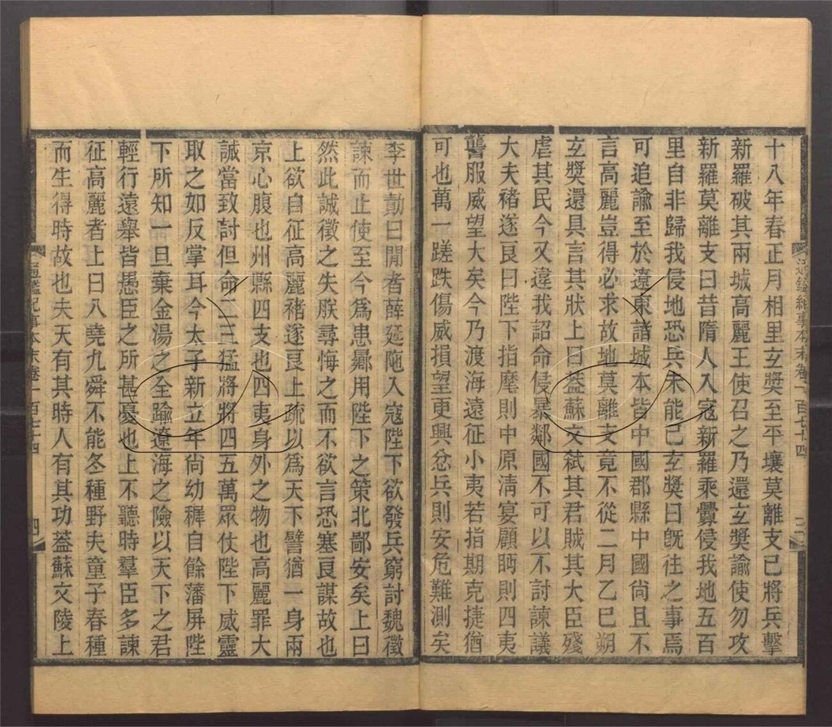 十八年春正月相里玄奬至平壤莫離支已將兵擊
新羅破其兩城高麗王使召之乃還玄奬諭使勿攻
新羅莫離支曰昔隋人入寇新羅乘釁侵我地五百
里自非歸我侵地恐兵未能已玄奬曰旣往之事焉
可追論至於遼東諸城本皆中國郡縣中國尙且不
言高麗豈得必求故地莫離支竟不從二月乙巳朔
玄奬還具言其狀上曰蓋蘇文弑其君賊其大臣殘
虐其民今又違我詔命侵暴鄰國不可以不討諫議
大夫褚遂良曰陛下指麾則中原淸宴顧眄則四夷
讋服威望大矣今乃渡海遠征小夷若指期克捷猶
可也萬一蹉跌傷威損望更興忿兵則安危難測矣
通鑑紀事本末卷一百七十四
李世勣曰閒者薛延陁入寇陛下欲發兵窮討魏徵
諫而止使至今爲患曏用陛下之策北鄙安矣上曰
然此誠徵之失朕尋悔之而不欲言恐塞良謀故也
上欲自征高麗褚遂良上疏以爲天下譬猶一身兩
京心腹也州縣四支也四夷身外之物也高麗罪大
誠當致討但命二三猛將將四五萬眾仗陛下威靈
取之如反掌耳今太子新立年尙幼穉自餘藩屏陛
下所知一旦棄金湯之全踰遼海之險以天下之君
輕行遠舉皆愚臣之所甚憂也上不聽時羣臣多諫
征高麗者上曰八堯九舜不能冬種野夫童子春種
而生得時故也夫天有其時人有其功蓋蘇文陵上
通鑑紀事本末卷一百七十四
四